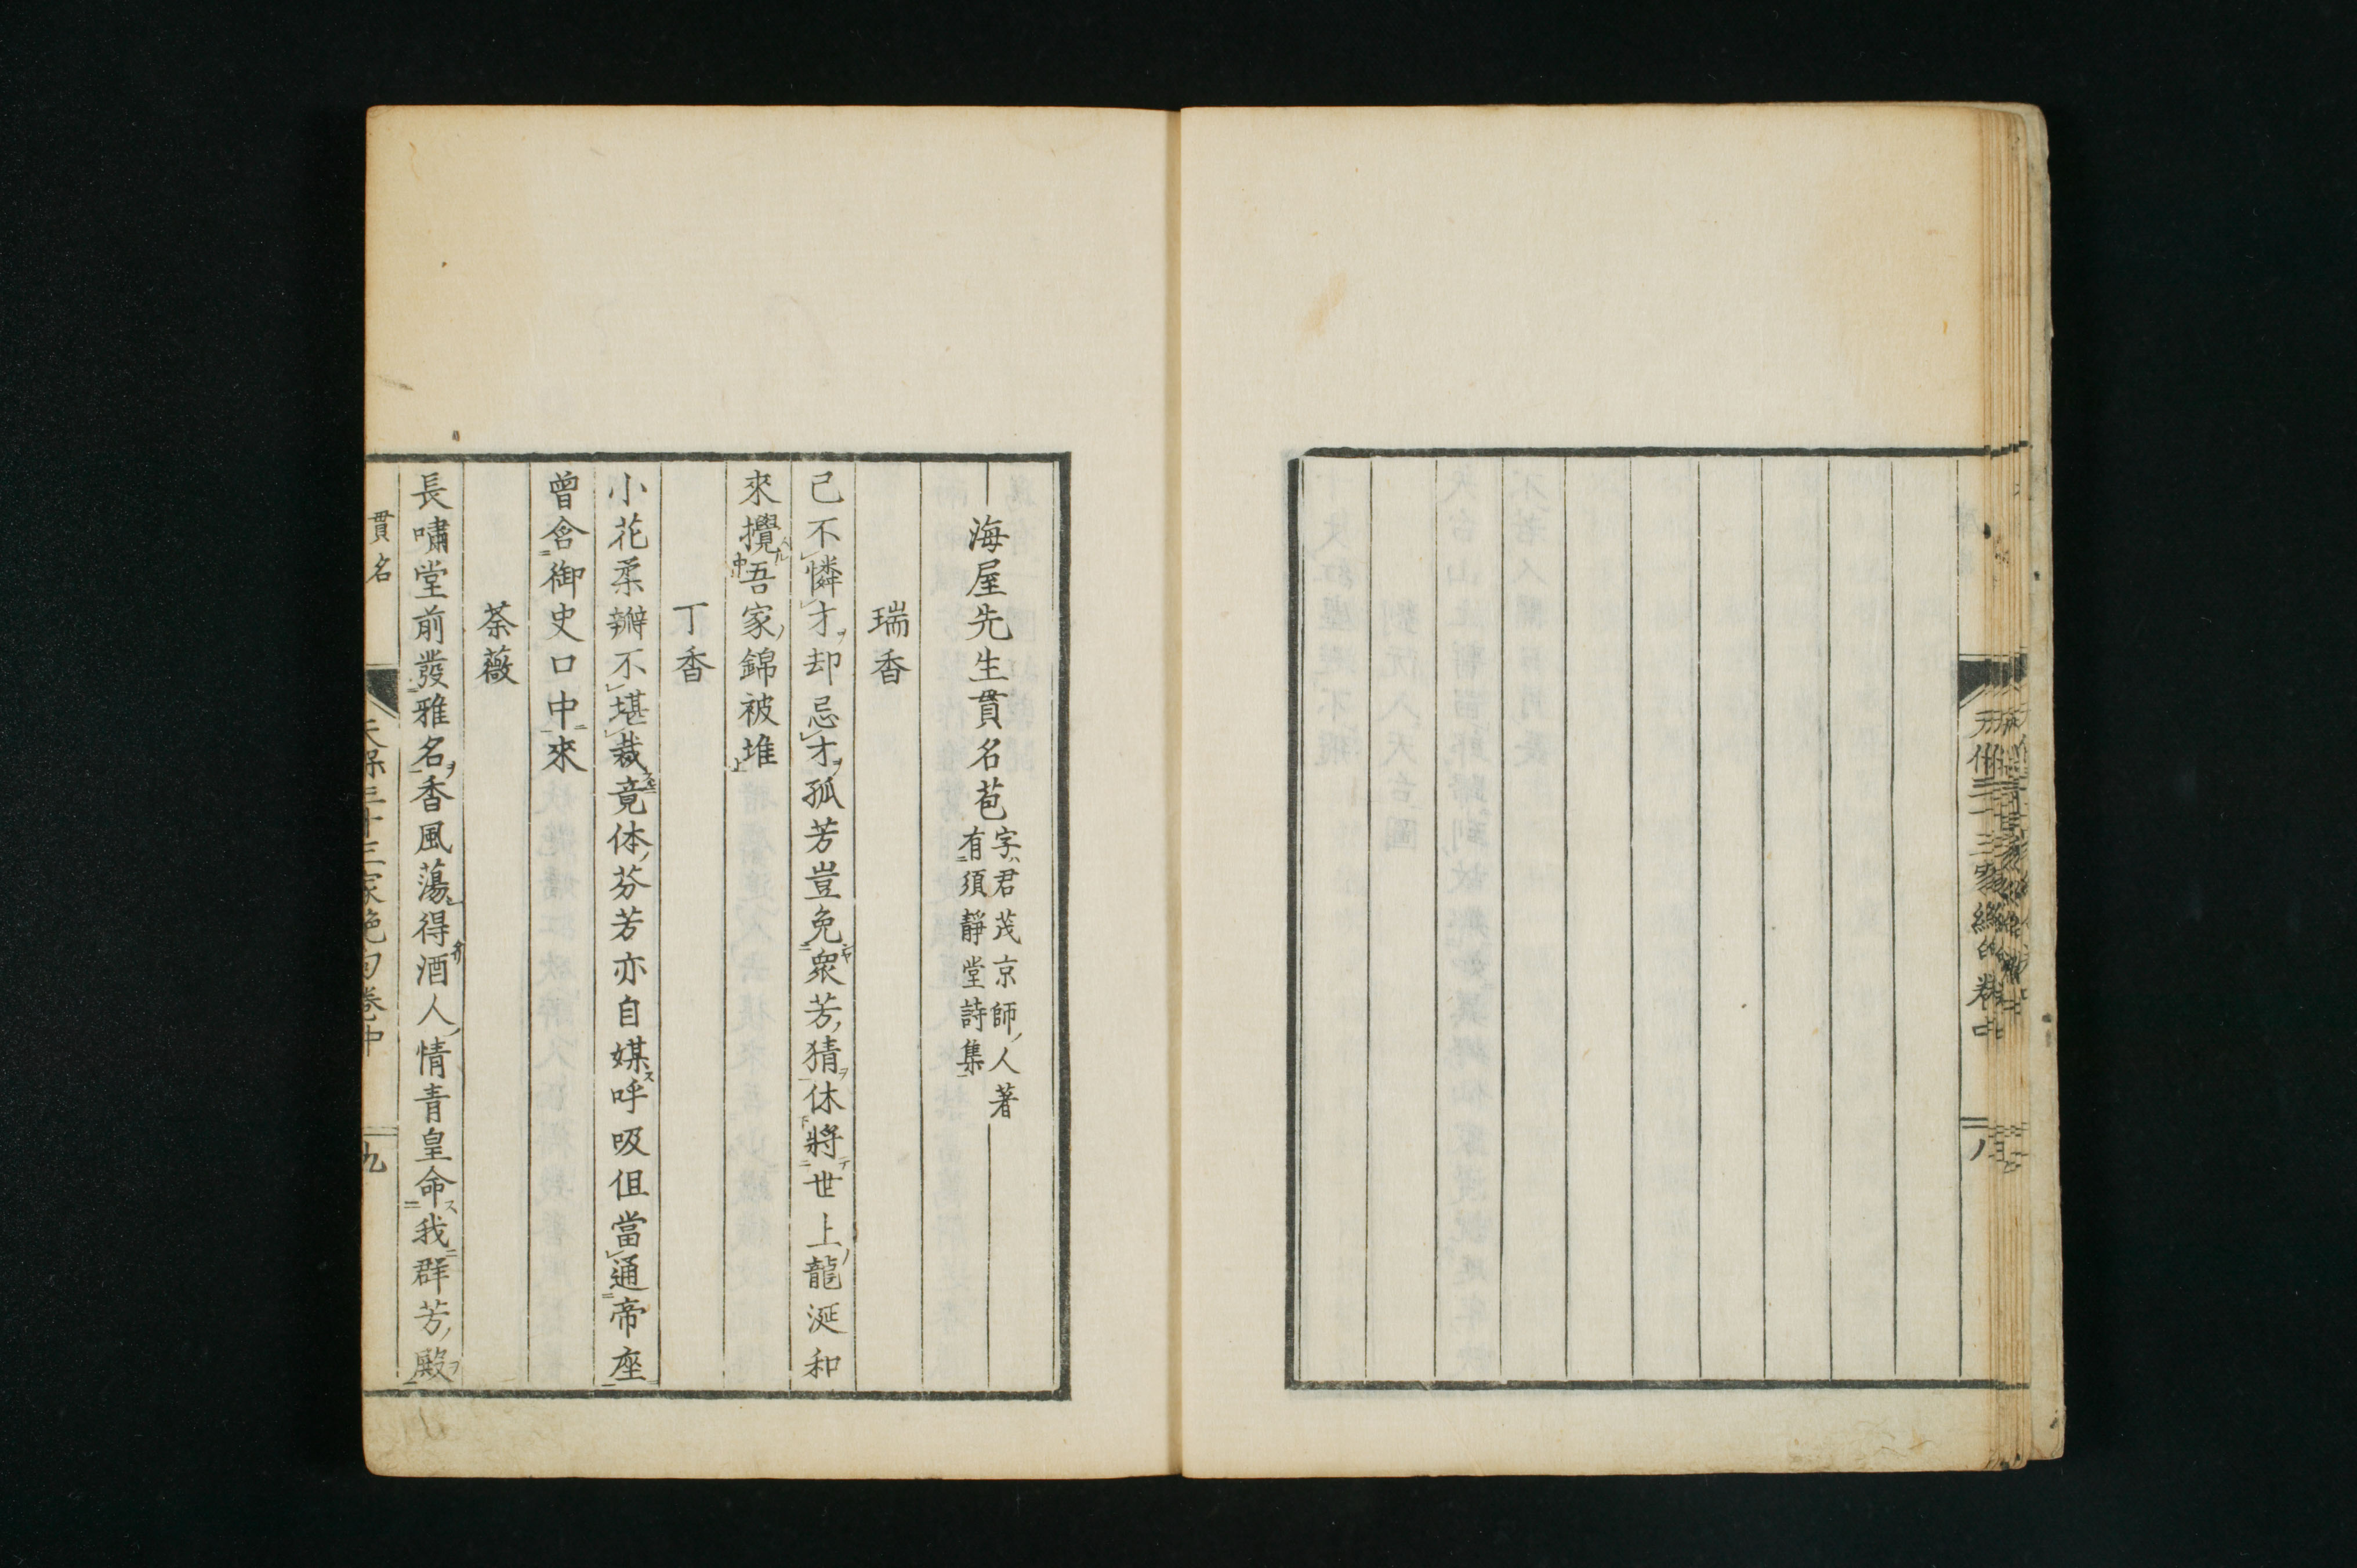 海屋先生貫名苞
字ハ君茂京師ノ人著
有須靜堂詩集
瑞香
己不憐才ヲ却忌才ヲ孤芳豈免衆芳ノ猜ヲ休將世上ノ龍涎和
來攪吾家ノ錦被堆
丁香
小花柔瓣不堪裁竟体ノ芬芳亦自媒ス呼吸但當通帝座
曾含御史口中來
荼薇
長嘯堂前發雅名ヲ香風蕩得酒人ノ情青皇命ス我群芳ノ殿ヲ
貫名
天保三十三家絶句卷中
九